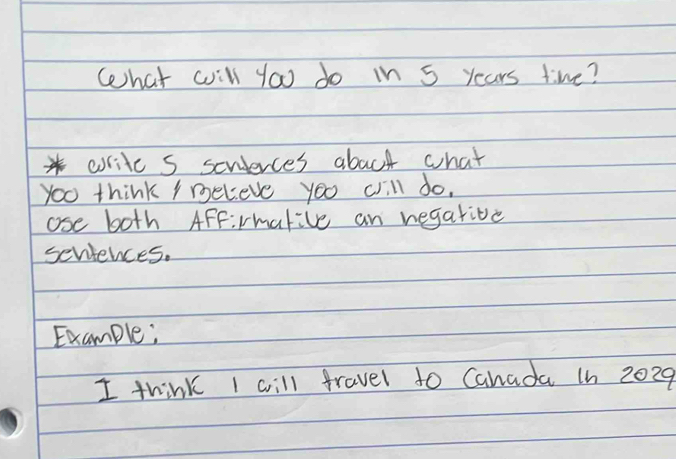 What will you do in 5 years time?
* write 5 sentences about what
you think / Believe you will do.
use both Affirmative an negative
sentences.
Example:
I think I will travel to Canada in 2029